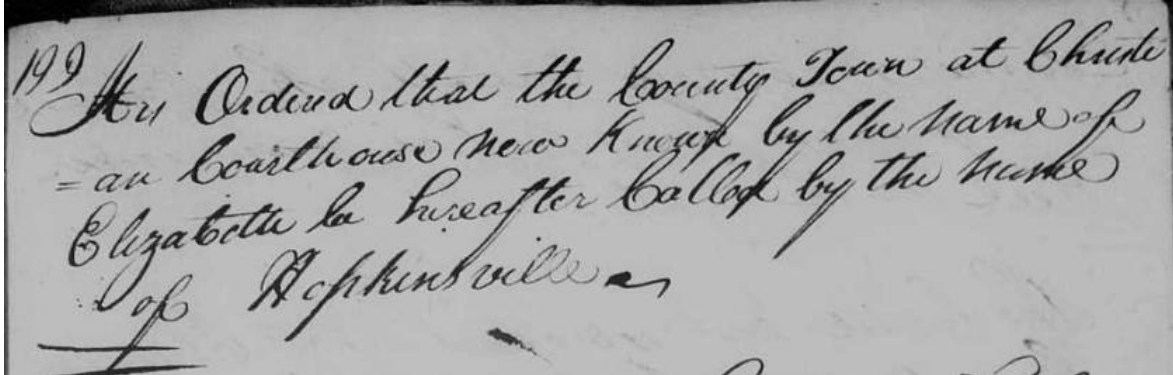 199
It is Ordered that the County Town at Christi
=an Courthouse now Known by the name of
Elizabeth be hereafter Called by the name
of Hopkinsville